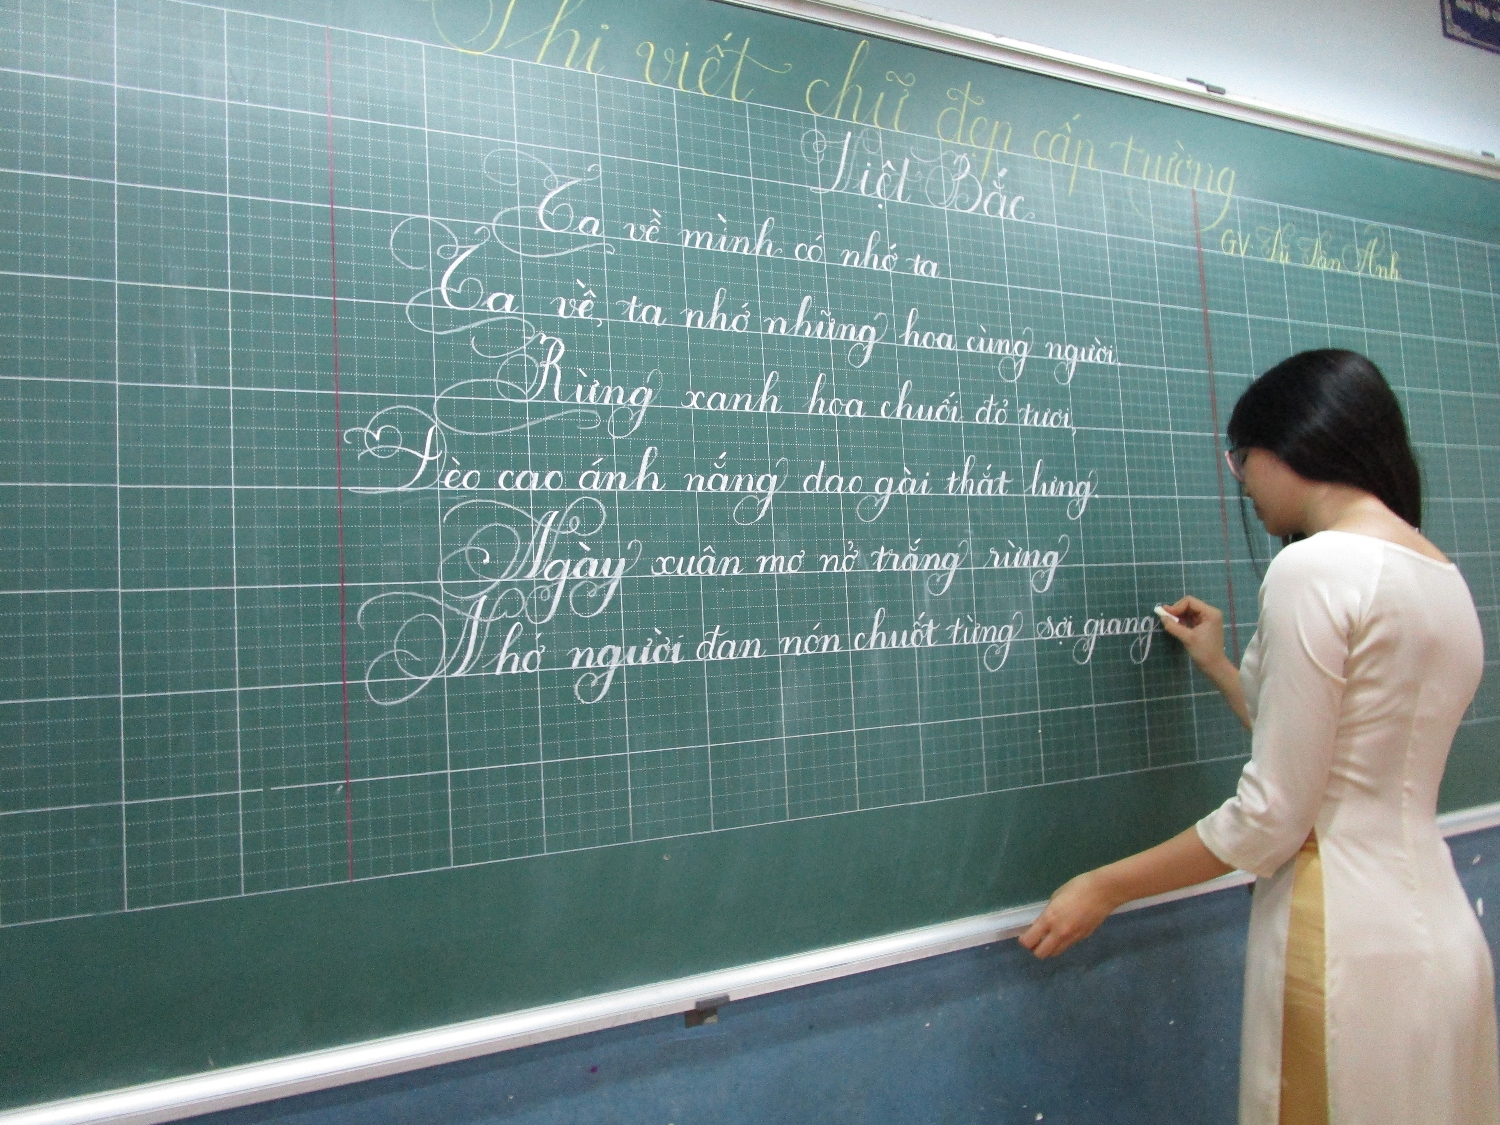 Thi viết chữ đẹp cấp trường
Việt Bắc
GV
Ta về mình có nhớ ta
Ta về, ta nhớ những hoa cùng người.
Rừng xanh hoa chuối đỏ tươi,
Đèo cao ánh nắng dao gài thắt lưng.
Ngày xuân mơ nở trắng rừng
Nhớ người đan nón chuốt từng sợi giang